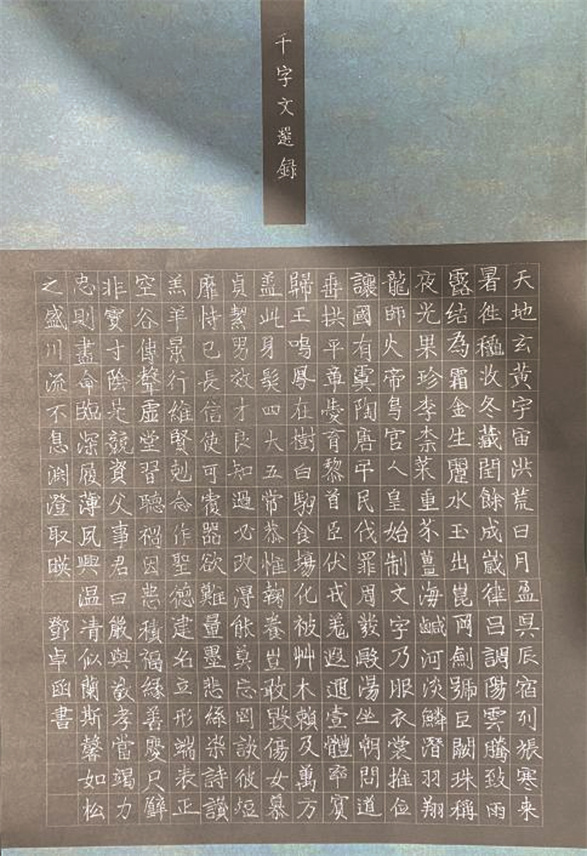 千字文選錄
天地玄黃宇宙洪荒日月盈昃辰宿列張寒來
暑往穐收冬藏閏餘成歲律呂調陽雲騰致雨
露结為霜金生麗水玉出崑岡劍號巨闕珠稱
夜光果珍李柰菜重芥薑海鹹河淡鱗潛羽翔
龍師火帝鳥官人皇始制文字乃服衣裳推位
讓國有虞陶唐弔民伐罪周發殷湯坐朝問道
垂拱平章愛育黎首臣伏戎羌遐邇壹體率賓
歸王鳴鳳在樹白駒食場化被艸木賴及萬方
蓋此身髮四大五常恭惟鞠養豈敢毀傷女慕
貞絜男效才良知過必改得能莫忘罔談彼短
靡恃己長信使可覆器欲難量墨悲絲染詩讚
羔羊景行維賢剋念作聖德建名立形端表正
空谷傳聲虛堂習聽禍因惡積福緣善慶尺璧
非寶寸陰是競資父事君曰嚴與敬孝當竭力
忠則盡命臨深履薄夙興溫清似蘭斯馨如松
之盛川流不息淵澄取暎 鄧卓函書